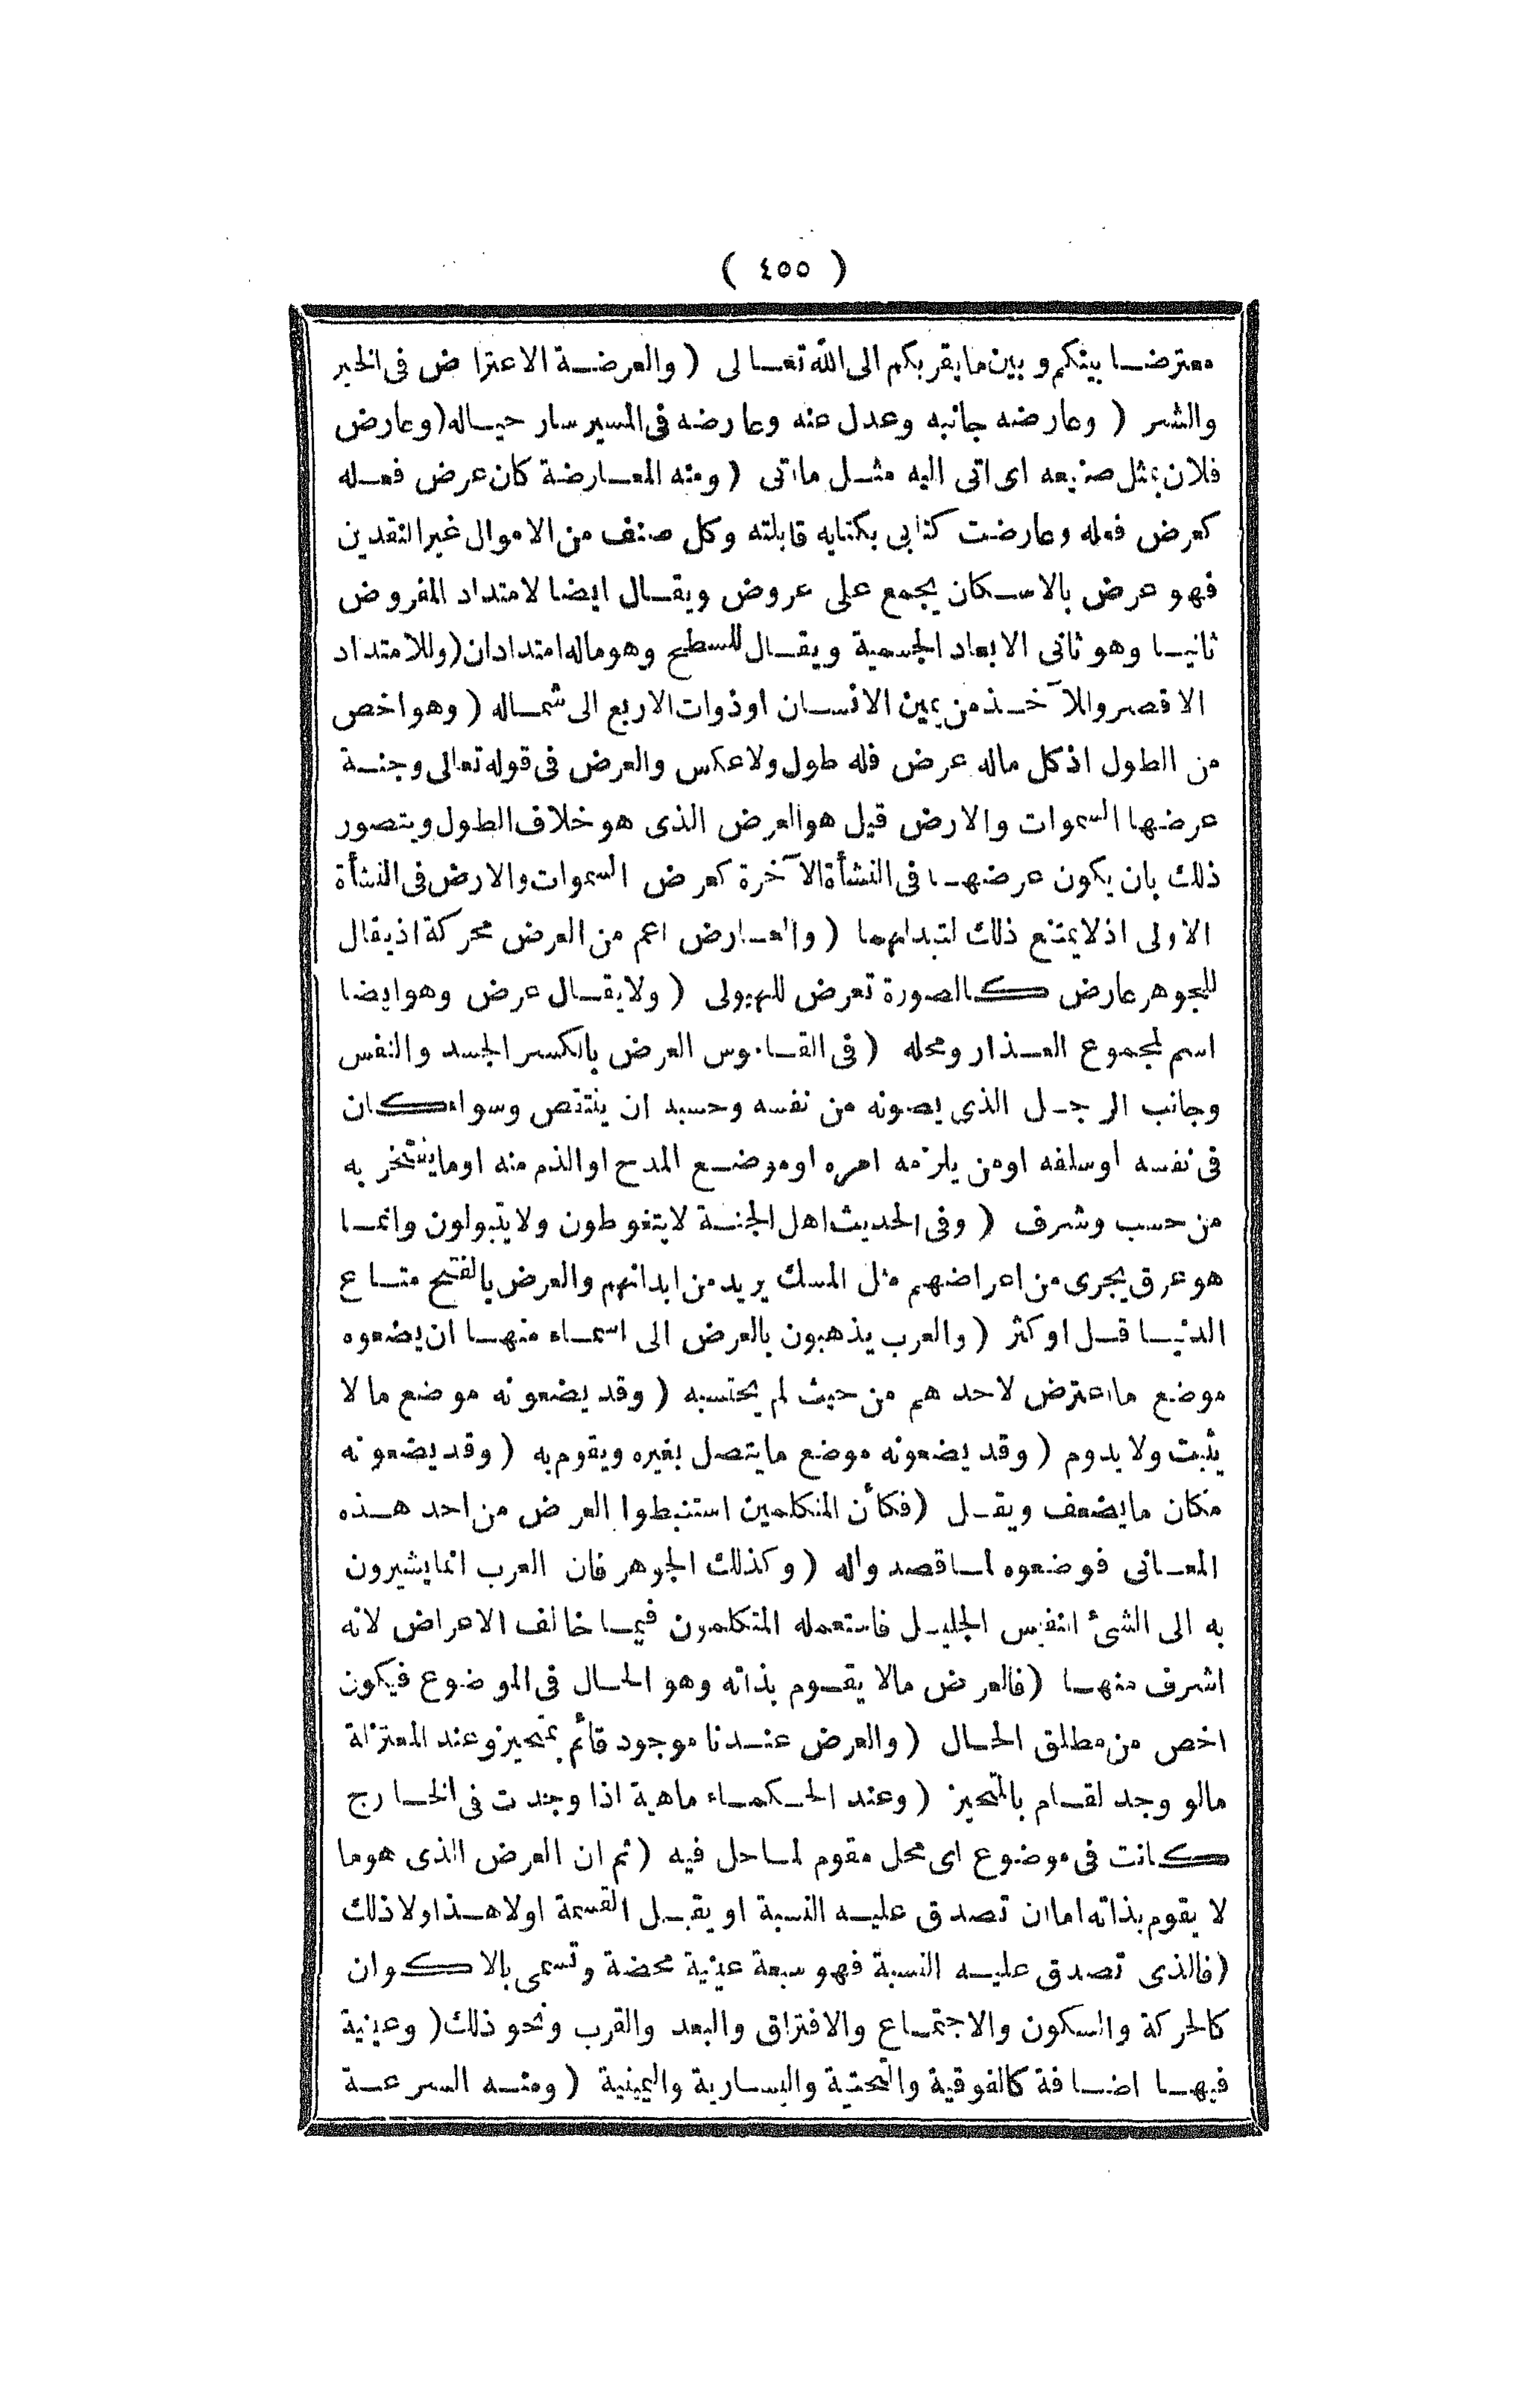 ( ٤٥٥ )
معترضا بينكم وبين ما يقربكم الى الله تعالى ( والعرضة الاعتراض فى الخير
والشر ( وعارضه جانبه وعدل عنه وعارضه فى المسير سار حياله ( وعارض
فلان بمثل صنيعه اى اتى اليه مثل مااتى ( ومنه المعارضة كان عرض فعله
كعرض فعله وعارضت كتابى بكتابه قابلته وكل صنف من الاموال غير النقدين
فهو عرض بالاسكان يجمع على عروض ويقال ايضا لامتداد المفروض
ثانيا وهو ثانى الابعاد الجسمية ويقال للسطح وهو ماله امتدادان ( وللامتداد
الاقصر وللآخذ من يمين الانسان اوذوات الاربع الى شماله ( وهو اخص
من الطول اذ كل ماله عرض فله طول ولا عكس والعرض فى قوله تعالى وجنة
عرضها السموات والارض قيل هو العرض الذى هو خلاف الطول ويتصور
ذلك بان يكون عرضها فى النشأة الآخرة كعرض السموات والارض فى النشأة
الاولى اذ لا يمتنع ذلك لتبدلهما ( والعارض اعم من العرض محركة اذ يقال
للجوهر عارض كالصورة تعرض للهيولى ( ولا يقال عرض وهو ايضا
اسم لمجموع العذار ومحله ( فى القاموس العرض بالكسر الجسد والنفس
وجانب الرجل الذى يصونه من نفسه وحسبه ان ينتقص وسواء كان
فى نفسه اوسلفه اومن يلزمه امره اوموضع المدح اوالذم منه اومايفتخر به
من حسب وشرف ( وفى الحديث اهل الجنة لا يتغوطون ولا يتبولون وانما
هو عرق يجرى من اعراضهم مثل المسك يريد من ابدانهم والعرض بالفتح متاع
الدنيا قل اوكثر ( والعرب يذهبون بالعرض الى اسماء منها ان يضعوه
موضع مااعترض لاحدهم من حيث لم يحتسبه ( وقد يضعونه موضع مالا
يثبت ولا يدوم ( وقد يضعونه موضع مايتصل بغيره ويقوم به ( وقد يضعونه
مكان مايضعف ويقل ( فكأن المتكلمين استنبطوا العرض من احد هذه
المعانى فوضعوه لما قصدواله ( وكذلك الجوهر فان العرب انما يشيرون
به الى الشئ النفيس الجليل فاستعمله المتكلمون فيما خالف الاعراض لانه
اشرف منها ( فالعرض مالا يقوم بذاته وهو الحال فى الموضوع فيكون
اخص من مطلق الحال ( والعرض عندنا موجود قائم بمتحيز وعند المعتزلة
مالو وجد لقام بالمتحيز ( وعند الحكماء ماهية اذا وجدت فى الخارج
كانت فى موضوع اى محل مقوم لما حل فيه ( ثم ان العرض الذى هو ما
لا يقوم بذاته اماان تصدق عليه النسبة او يقبل القسمة اولا هذا ولا ذلك
( فالذى تصدق عليه النسبة فهو سبعة عينية محضة وتسمى بالاكوان
كالحركة والسكون والاجتماع والافتراق والبعد والقرب ونحو ذلك ( وعينية
فيها اضافة كالفوقية والتحتية واليسارية واليمينية ( ومنه السرعة